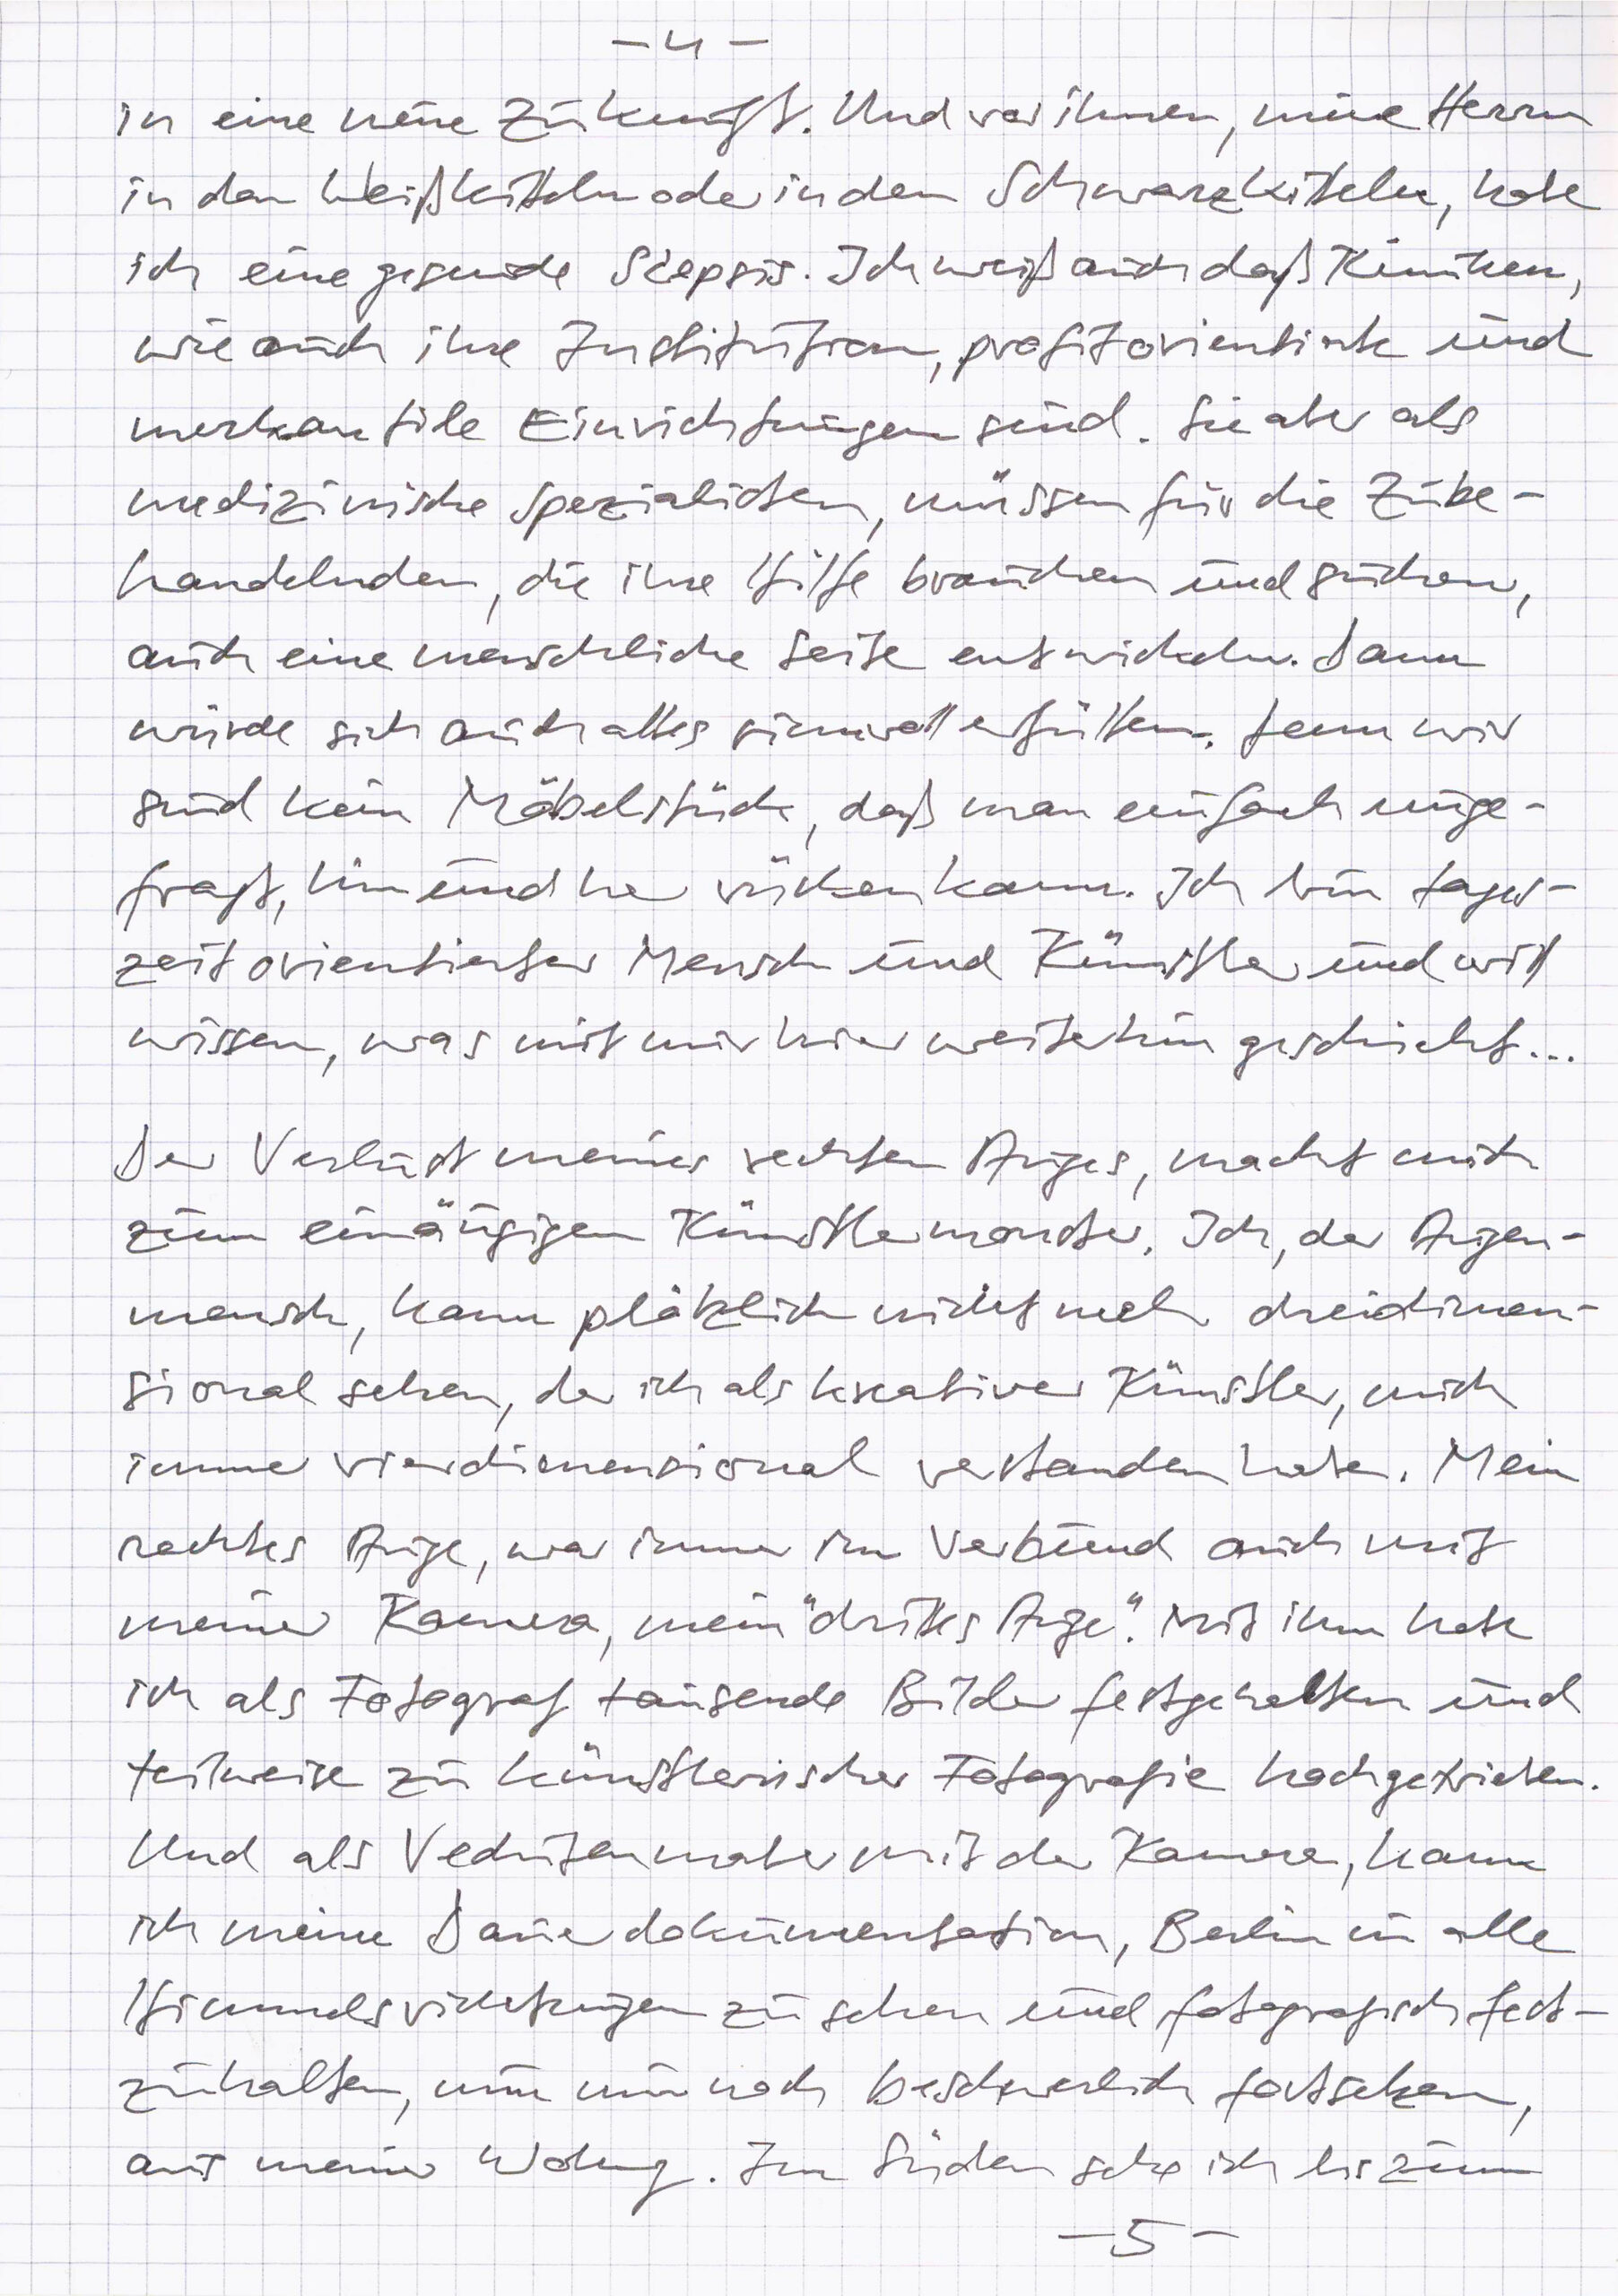 - 4 -
in eine neue Zukunft. Und vor ihnen, meine Herrn
in den Weißkitteln oder in den Schwarzkitteln, habe
ich eine gesunde Scepsis. Ich weiß auch daß Kliniken,
wie auch ihre Institution, profitorientierte und
merkantile Einrichtungen sind. Sie aber als
medizinische Spezialisten, müssen für die Zube-
handelnden, die ihre Hilfe brauchen und suchen,
auch eine menschliche Seite entwickeln. Dann
würde sich auch alles sinnvoll erfüllen. Denn wir
sind kein Möbelstück, daß man einfach unge-
fragt, hin und her rücken kann. Ich bin tages-
zeit orientierter Mensch und Künstler und will
wissen, was mit mir hier weiterhin geschieht...
Der Verlust meines rechten Auges, macht mich
zum einäugigen Künstlermonster. Ich, der Augen-
mensch, kann plötzlich nicht mehr dreidimen-
sional sehen, der ich als kreativer Künstler, mich
immer vierdimensional verstanden habe. Mein
rechtes Auge, war immer im Verbund auch mit
meiner Kamera, mein "drittes Auge". Mit ihm habe
ich als Fotograf tausende Bilder festgehalten und
teilweise zu künstlerischer Fotografie hochgetrieben.
Und als Vedutenmaler mit der Kamera, kann
ich meine Dauerdokumentation, Berlin in alle
Himmelsrichtungen zu sehen und fotografisch fest-
zuhalten, nun nur noch beschwerlich fortsetzen,
aus meiner Wohng. Im Süden sehe ich bis zum
- 5 -